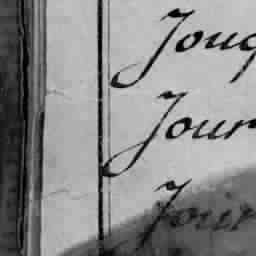 Joug
Jour
Jour